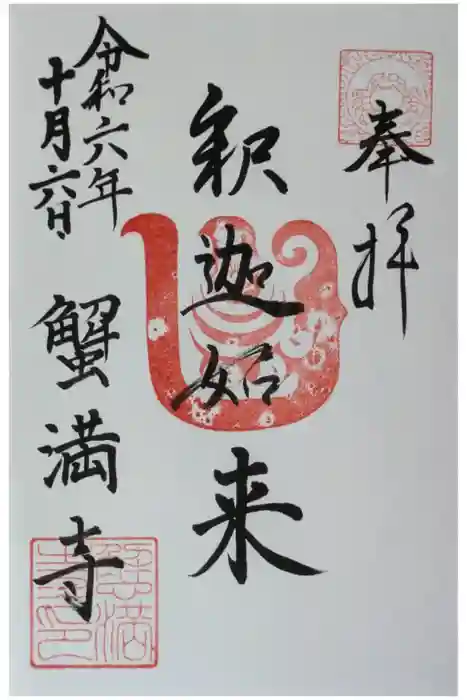 奉拝
釈迦如来
令和六年
十月六日
蟹満寺
蟹満寺印